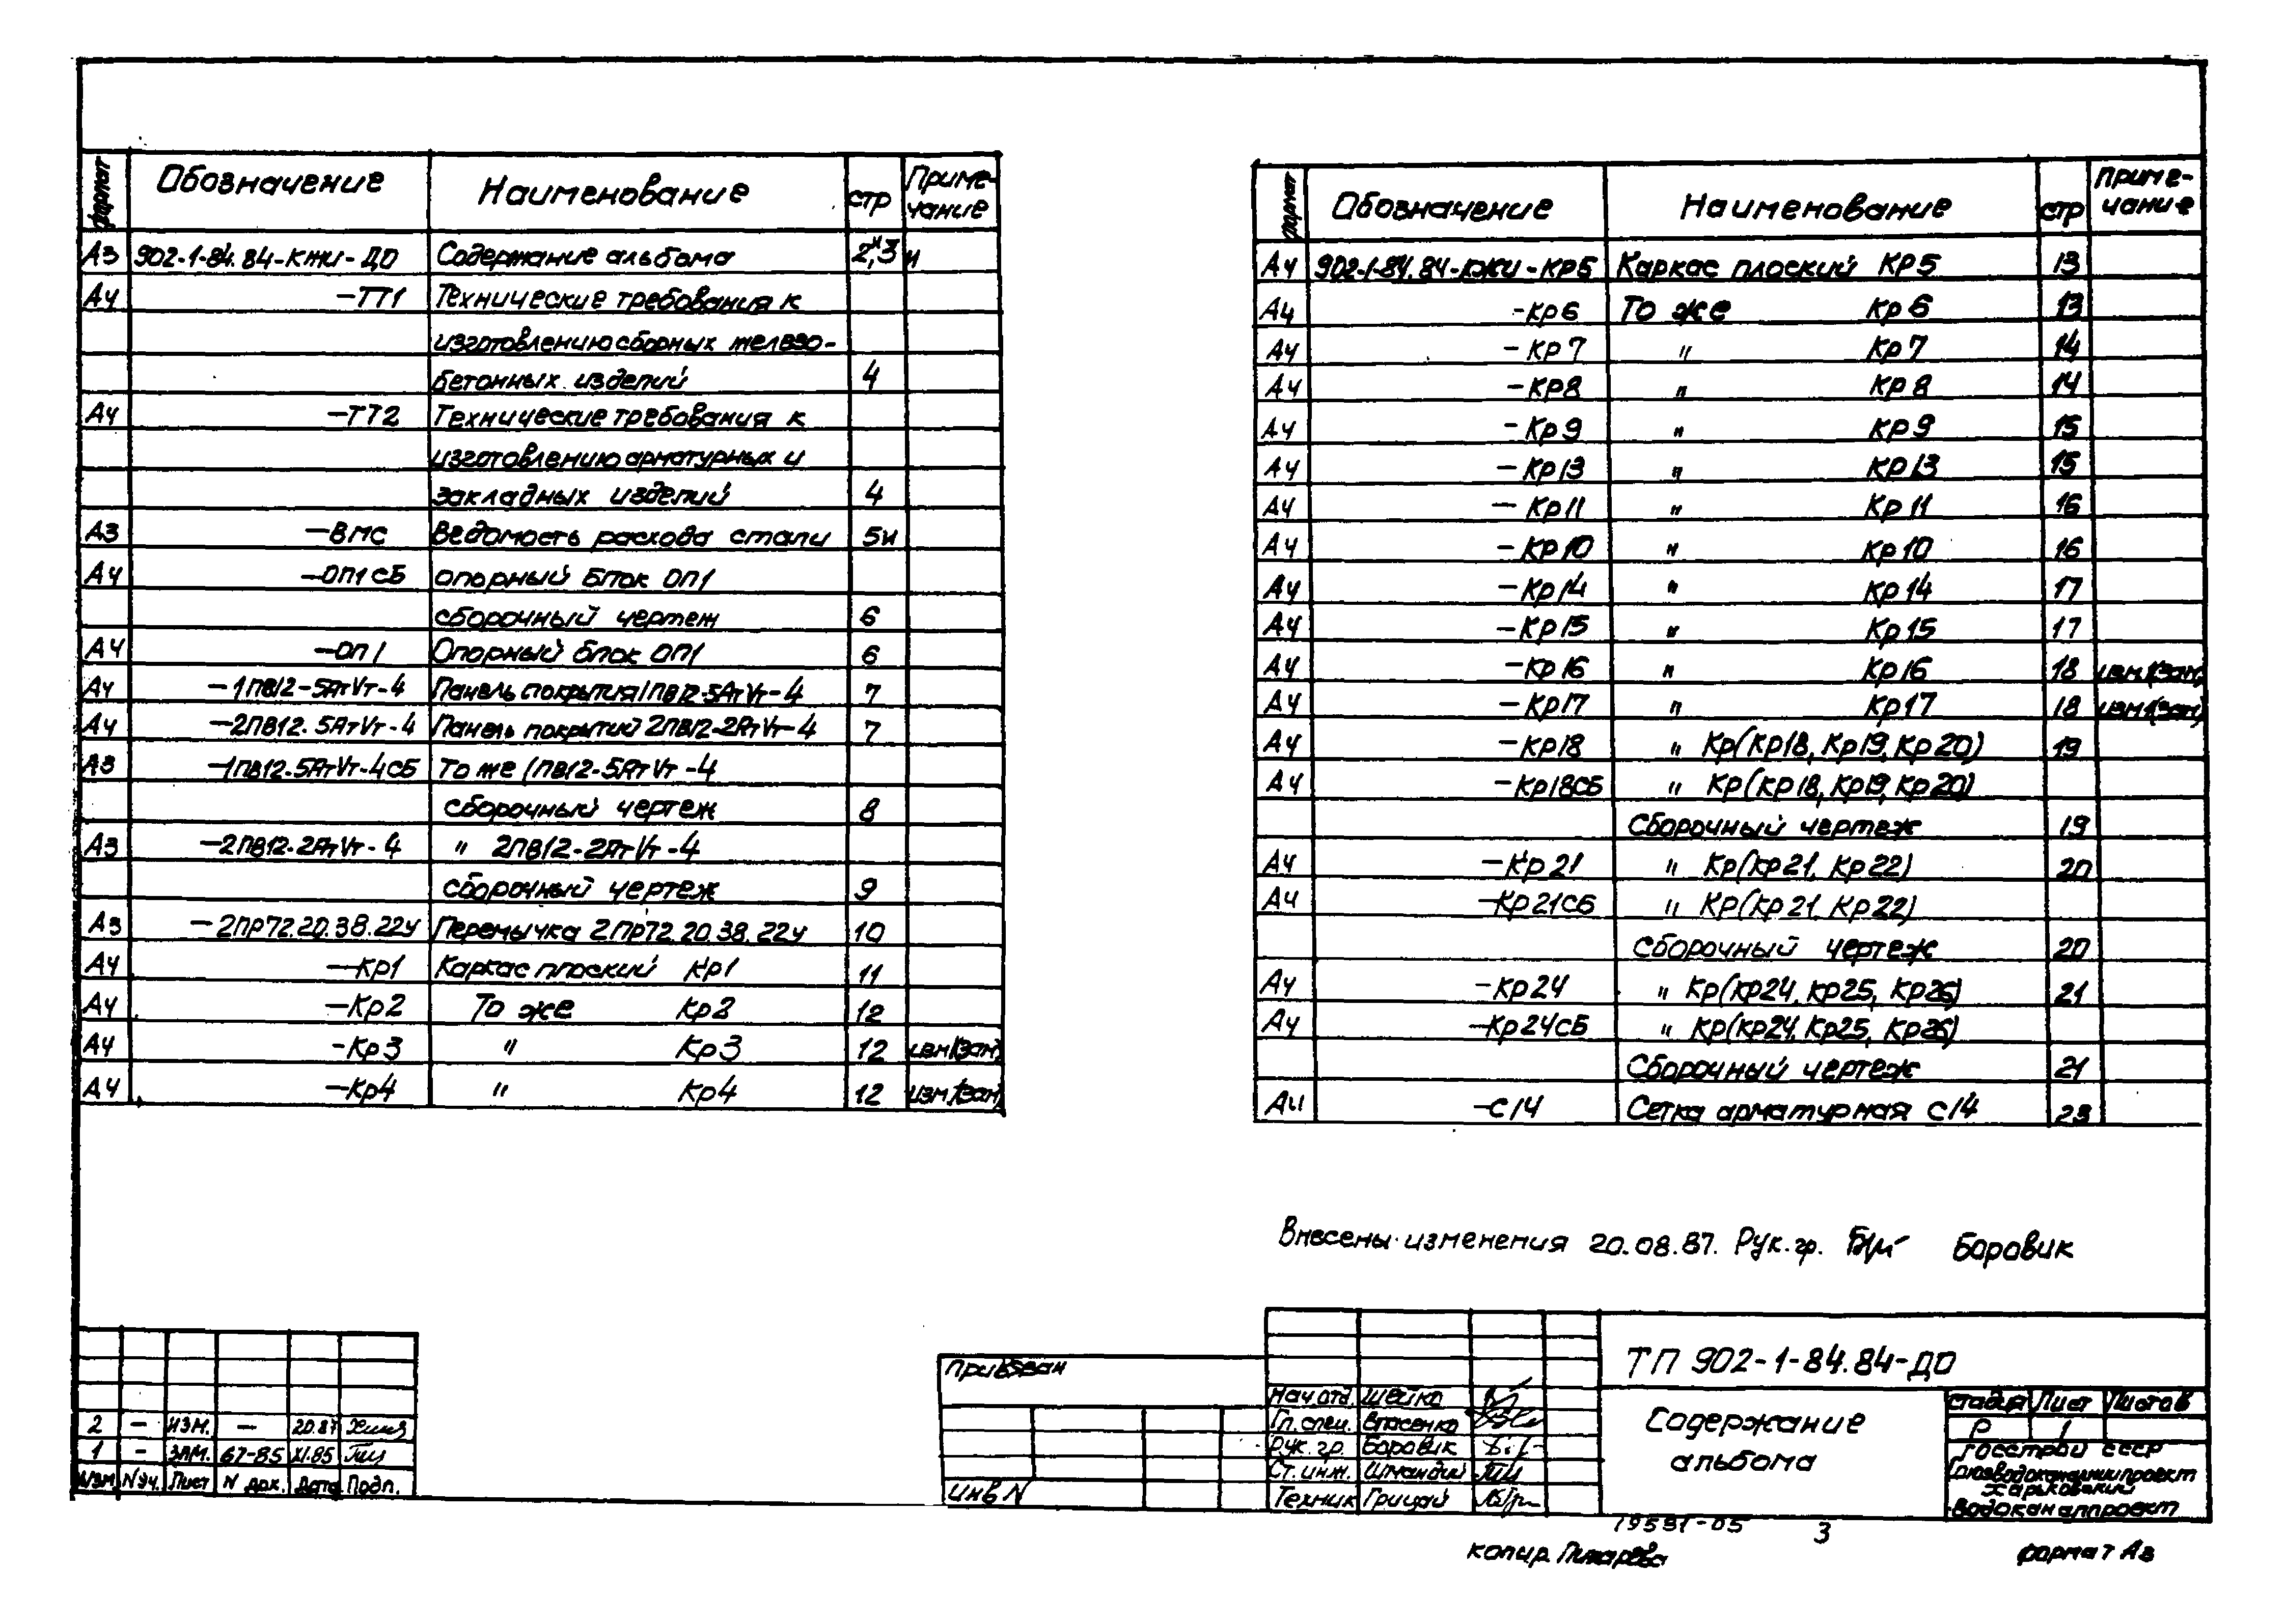 формат Обозначение Наименование стр Приме-чание
А3 902-1-84.84-КЖИ-ДО Содержание альбома 2,3 и
А4 -ТТ1 Технические требования к
изготовлению сборных железо-
бетонных изделий 4
А4 -ТТ2 Технические требования к
изготовлению арматурных и
закладных изделий 4
А3 -ВМС Ведомость расхода стали 5и
А4 -ОП1 СБ опорный блок ОП1
сборочный чертеж 6
А4 -ОП1 Опорный блок ОП1 6
А4 -1ПВ12-5АтVт-4 Панель покрытия 1ПВ12-5АтVт-4 7
А4 -2ПВ12-5АтVт-4 Панель покрытий 2ПВ12-2АтVт-4 7
А3 -1ПВ12-5АтVт-4СБ То же 1ПВ12-5АтVт-4
сборочный чертеж 8
А3 -2ПВ12-2АтVт-4 " 2ПВ12-2АтVт-4
сборочный чертеж 9
А3 -2ПР72.20.38.22у Перемычка 2ПР72.20.38.22у 10
А4 -Кр1 Каркас плоский Кр1 11
А4 -Кр2 То же Кр2 12
А4 -Кр3 " Кр3 12 изм1(зам)
А4 -Кр4 " Кр4 12 изм1(зам)
формат Обозначение Наименование стр Приме-чание
А4 902-1-84.84-КЖИ-КР5 Каркас плоский КР5 13
А4 -Кр6 То же Кр6 13
А4 -Кр7 " Кр7 14
А4 -Кр8 " Кр8 14
А4 -Кр9 " Кр9 15
А4 -Кр13 " Кр13 15
А4 -Кр11 " Кр11 16
А4 -Кр10 " Кр10 16
А4 -Кр14 " Кр14 17
А4 -Кр15 " Кр15 17
А4 -Кр16 " Кр16 18 изм1(зам)
А4 -Кр17 " Кр17 18 изм1(зам)
А4 -Кр18 " Кр(Кр18, Кр19, Кр20) 19
А4 -Кр18СБ " Кр(Кр18, Кр19, Кр20)
Сборочный чертеж 19
А4 -Кр21 " Кр(Кр21, Кр22) 20
А4 -Кр21СБ " Кр(Кр21, Кр22)
Сборочный чертеж 20
А4 -Кр24 " Кр(Кр24, Кр25, Кр26) 21
А4 -Кр24СБ " Кр(Кр24, Кр25, Кр26)
Сборочный чертеж 21
А4 -С14 Сетка арматурная С14 23
Внесены изменения 20.08.87. Рук.гр. Боровик
2 - ИЗМ. - 20.87
1 - ЗАМ. 67-85 XI.85
Изм Nуч. Лист N док. Дата Подп.
Привязан
Инв N
Нач.отд. Шейко
Гл.спец. Власенко
Рук.гр. Боровик
Ст.инж. Шмандий
Техник Грицай
ТП 902-1-84.84-ДО
Содержание
альбома
Стадия Лист Листов
Р 1
Госстрой СССР
Союзводоканалниипроект
Харьковский
Водоканалпроект
19531-05 3
копир. формат А3